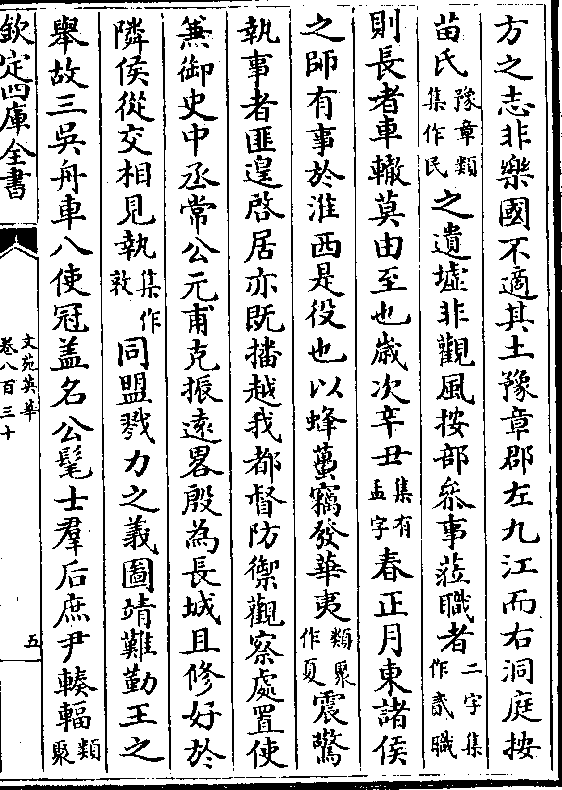 方之志非樂國不適其土豫章郡左九江而右洞庭按
苗氏豫章類集作民之遺墟非觀風按部叅事蒞職者二字集作貳職
則長者車轍莫由至也歳次辛丑集有孟字春正月東諸侯
之師有事於淮西是役也以蜂蠆竊發華夷類聚作夏震驚
執事者匪遑啓居亦既播越我都督防禦觀察處置使
兼御史中丞常公元甫克振逺畧殷為長城且修好於
隣侯從交相見執集作敦同盟戮力之義圖靖難勤王之
舉故三吳舟車八使冠盖名公髦士羣后庶尹輳輻類聚
欽定四庫全書
文苑英華
卷八百三十
五